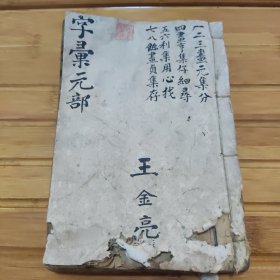 一二三畫元集分
四畫亨集仔細尋
五六利集用心找
七八餘畫貞集存
王金亮
字彙元部